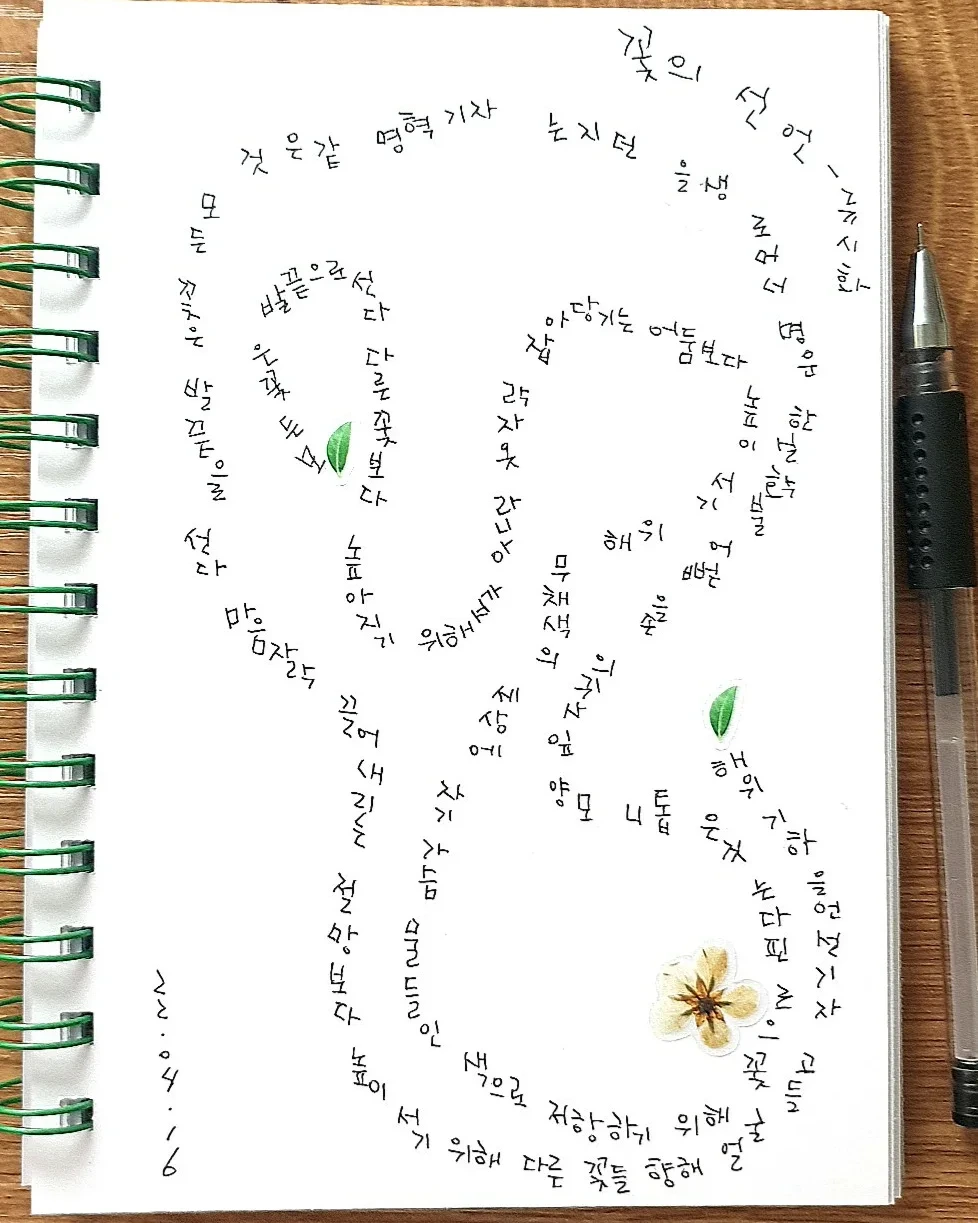 꽃의 선언 - 류시화
모든 꽃은
발끝으로 선다
다른 꽃보다
높아지기 위해서가
아니라
옷자락
잡아당기는 어둠보다
높이 서기 위해
무채색의 세상에
자기 가슴
물들인 색으로
저항하기 위해
꽃으로 핀다는 것은
톱니 모양 잎사귀의
손을 뻗어
불확실한 운명
너머로 생을 던지는
자기 혁명 같은 것
모든 꽃은
발끝을 선다
마음자락 끌어내리는
절망보다 높이 서기 위해
다른 꽃들 향해
얼굴 들고
자기 선언을 하기 위해
22.04.16